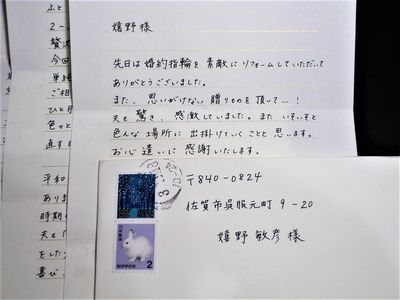 嬉野様
先日は婚約指輪を素敵にリフォームしていただいて
ありがとうございました。
また、思いがけない贈りものを頂して…!
夫も驚き、感激していました。またいそいそと
色んな場所に出掛けていくことと思います。
お心遣いに感謝いたします。
〒840-0824
佐賀市呉服元町9-20
嬉野敏彦様
日本郵便
NIPPON 2
ふと
2〜
贅沢
今回
単純
ご相
ひと月
色々と
直す
平和
ありま
時期
夫も
をした
喜び